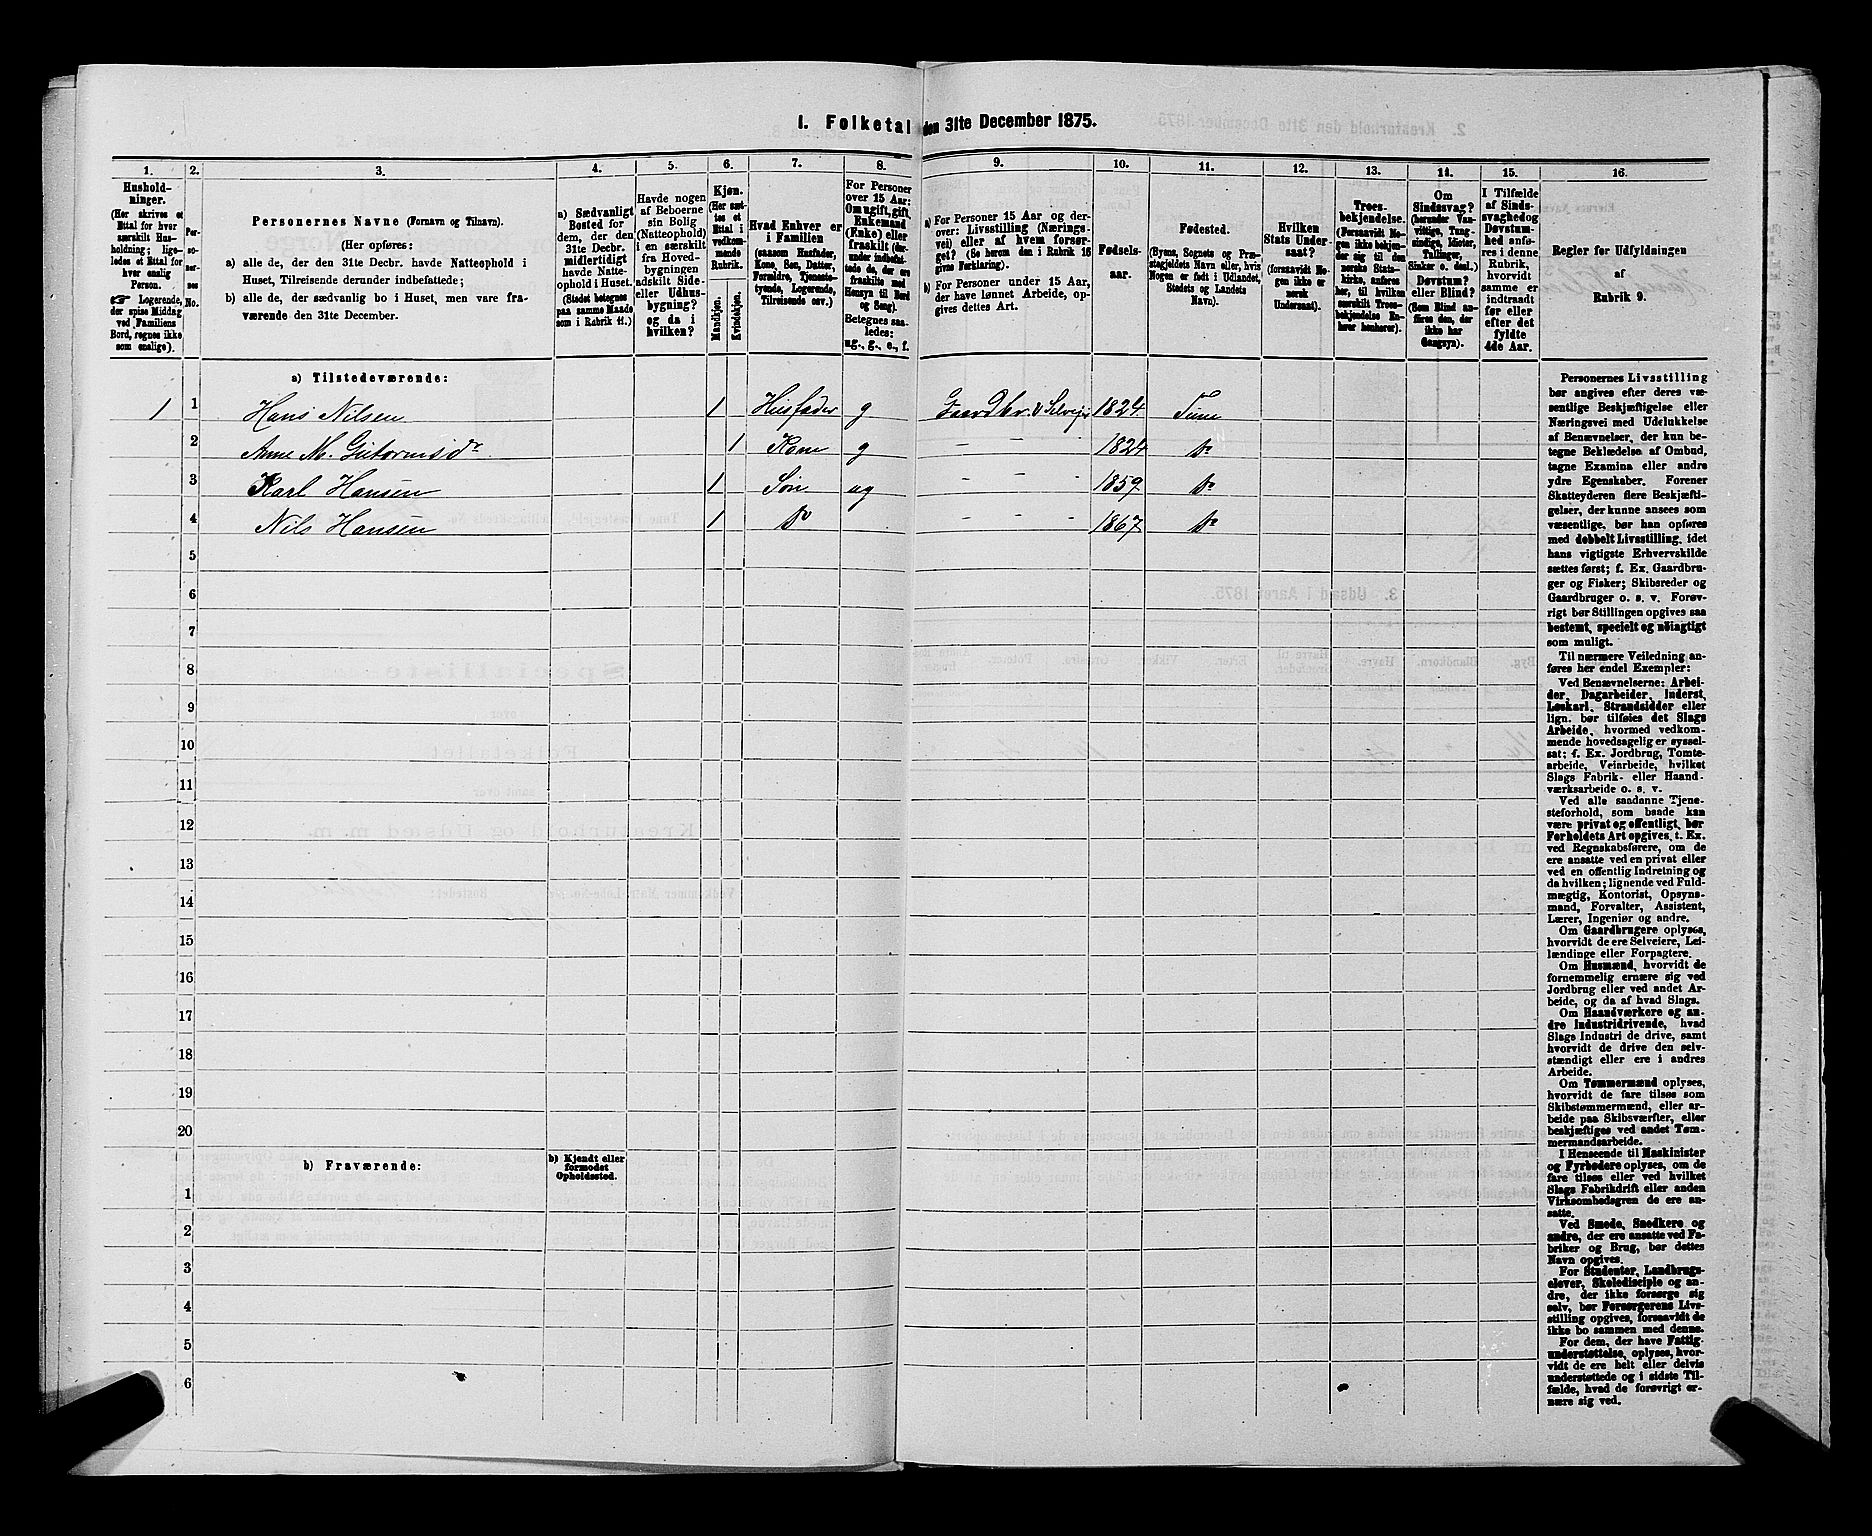 I. Folketal den 31te December 1875.
1.
2.
3.
4.
5.
6.
7.
8.
9.
10.
11.
12.
13.
14.
15.
16.
Hushold-
ninger.
(Her skrives et
Ettal for hver
særskilt Hus-
holdning; lige-
ledes et Ettal for
hver enslig
Person.
☞ Logerende,
der spise Middag
ved Familiens
Bord, regnes ikke
som enslige).
Per-
so-
ner-
nes
No.
Personernes Navne (Fornavn og Tilnavn).
(Her opføres:
a) alle de, der den 31te Decbr. havde Natteophold i
Huset, Tilreisende derunder indbefattede;
b) alle de, der sædvanlig bo i Huset, men vare fra-
værende den 31te December.
a) Sædvanligt
Bosted for
dem, der den
31te Decbr.
midlertidigt
havde Natte-
ophold i Huset.
(Stedet betegnes
paa samme Maade
som i Rubrik 11.)
Havde nogen
af Beboerne
sin Bolig
(Natteophold)
i en særskilt
fra Hoved-
bygningen
adskilt Side-
eller Udhus-
bygning?
og da i
hvilken?
Kjøn.
(Her sæt-
tes et
Ettal i
vedkom-
mende
Rubrik.
Mandkjøn.
Kvindekjøn.
Hvad Enhver er
i Familien
(saasom Husfader,
Kone, Søn, Datter,
Forældre, Tjeneste-
tyende, Logerende,
Tilreisende osv.)
For Personer
over 15 Aar:
Om ugift, gift,
Enkemand
(Enke) eller
fraskilt (der-
under indbefat-
tede de, der ere
fraskilte med
Hensyn til Bord
og Seng).
Betegnes saa-
ledes:
ug., g., e., f.
a) For Personer 15 Aar og der-
over: Livsstilling (Nærings-
vei) eller af hvem forsør-
get? (Se herom den i Rubrik 16
givne Forklaring).
b) For Personer under 15 Aar,
der have lønnet Arbeide, op-
gives dettes Art.
Fødsels-
aar.
Fødested.
(Byens, Sognets og Præ-
stegjeldets Navn eller, hvis
Nogen er født i Udlandet,
Stedets og Landets
Navn).
Hvilken
Stats Under-
saat?
(forsaavidt No-
gen ikke er
norsk
Undersaat).
Troes-
bekjendelse.
(Forsaavidt No-
gen ikke bekjen-
der sig til den
norske Stats-
kirke, anføres
her, til hvilken
særskilt Troes-
bekjendelse En-
hver henhører).
Om
Sindssvag?
(herunder Van-
vittige, Tung-
sindige, Idioter,
Tullinger,
Sinker o. desl.)
Døvstum?
eller Blind?
(Som Blind an-
føres den, der
ikke har
Gangsyn).
I Tilfælde
af Sinds-
svaghed og
Døvstum-
hed anfø-
res i denne
Rubrik,
hvorvidt
samme er
indtraadt
før eller
efter det
fyldte
4de Aar.
Regler før Udfyldningen
af
Rubrik 9.
a) Tilstedeværende:
1 1 Hans Nilsen 1 Husfader g Gaardbr. & Selveier 1824 Tune
2 Anne M. Gutormsdr 1 Kone g – – – 1824 do
3 Karl Hansen 1 Søn ug – – – 1859 do
4 Nils Hansen 1 do – – – 1867 do
5
6
7
8
9
10
11
12
13
14
15
16
17
18
19
20
b) Fraværende:
b) Kjendt eller
formodet
Opholdssted.
1
2
3
4
5
6
Personernes Livsstilling
bør angives efter deres væ-
sentlige Beskjæftigelse eller
Næringsvei med Udelukkelse
af Benævnelser, der kun be-
tegne Beklædelse af Ombud,
tagne Examina eller andre
ydre Egenskaber. Forener
Skatteyderen flere Beskjæfti-
gelser, der kunne ansees som
væsentlige, bør han opføres
med dobbelt Livsstilling, idet
hans vigtigste Erhvervskilde
sættes først; f. Ex. Gaardbru-
ger og Fisker; Skibsreder og
Gaardbruger o. s. v. Forøv-
rigt bør Stillingen opgives saa
bestemt, specielt og nøiagtigt
som muligt.
Til nærmere Veiledning an-
føres her endel Exempler:
Ved Benævnelserne: Arbei-
der, Dagarbeider, Inderst,
Løskarl, Strandsidder eller
lign. bør tilføies det Slags
Arbeide, hvormed vedkom-
mende hovedsagelig er syssel-
sat; f. Ex. Jordbrug, Tomte-
arbeide, Veiarbeide, hvilket
Slags Fabrik- eller Haand-
værksarbeide o. s. v.
Ved alle saadanne Tjene-
steforhold, som baade kan
være privat og offentligt, bør
Forholdets Art opgives, t. Ex.
ved Regnskabsførere, om de
ere ansatte ved en privat eller
ved en offentlig Indretning og
da hvilken; lignende ved Fuld-
mægtig, Kontorist, Opsyns-
mand, Forvalter, Assistent,
Lærer, Ingeniør og andre.
Om Gaardbrugere oplyses,
hvorvidt de ere Selveiere, Lei-
lændinge eller Forpagtere.
Om Husmænd, hvorvidt de
fornemmelig ernære sig ved
Jordbrug eller ved andet Ar-
beide, og da af hvad Slags.
Om Haandværkere og an-
dre industridrivende, hvad
Slags Industri de drive, samt
hvorvidt de drive den selv-
stændigt eller ere i andres
Arbeide.
Om Tømmermænd oplyses,
hvorvidt de fare tilsøs som
Skibstømmermænd, eller ar-
beide paa Skibsværfter, eller
beskjæftiges ved andet Tøm-
mermandsarbeide.
I Henseende til Maskinister
og Fyrbødere oplyses, om de
fare tilsøs eller ved hvilket
Slags Fabrikdrift eller anden
Virksomhedsgren de ere an-
satte.
Ved Smede, Snedkere og
andre, der ere ansatte ved Fa-
briker og Brug, bør dettes
Navn opgives.
For Studenter, Landbrugs-
elever, Skoledisciple og an-
dre, der ikke forsørge sig
selv, bør Forsørgerens Livs-
stilling opgives, forsaavidt de
ikke bo sammen med denne.
For dem, der have Fattig-
understøttelse, oplyses, hvor-
vidt de ere helt eller delvis
understøttede og i sidste Til-
fælde, hvad de forøvrigt er-
nære sig ved.